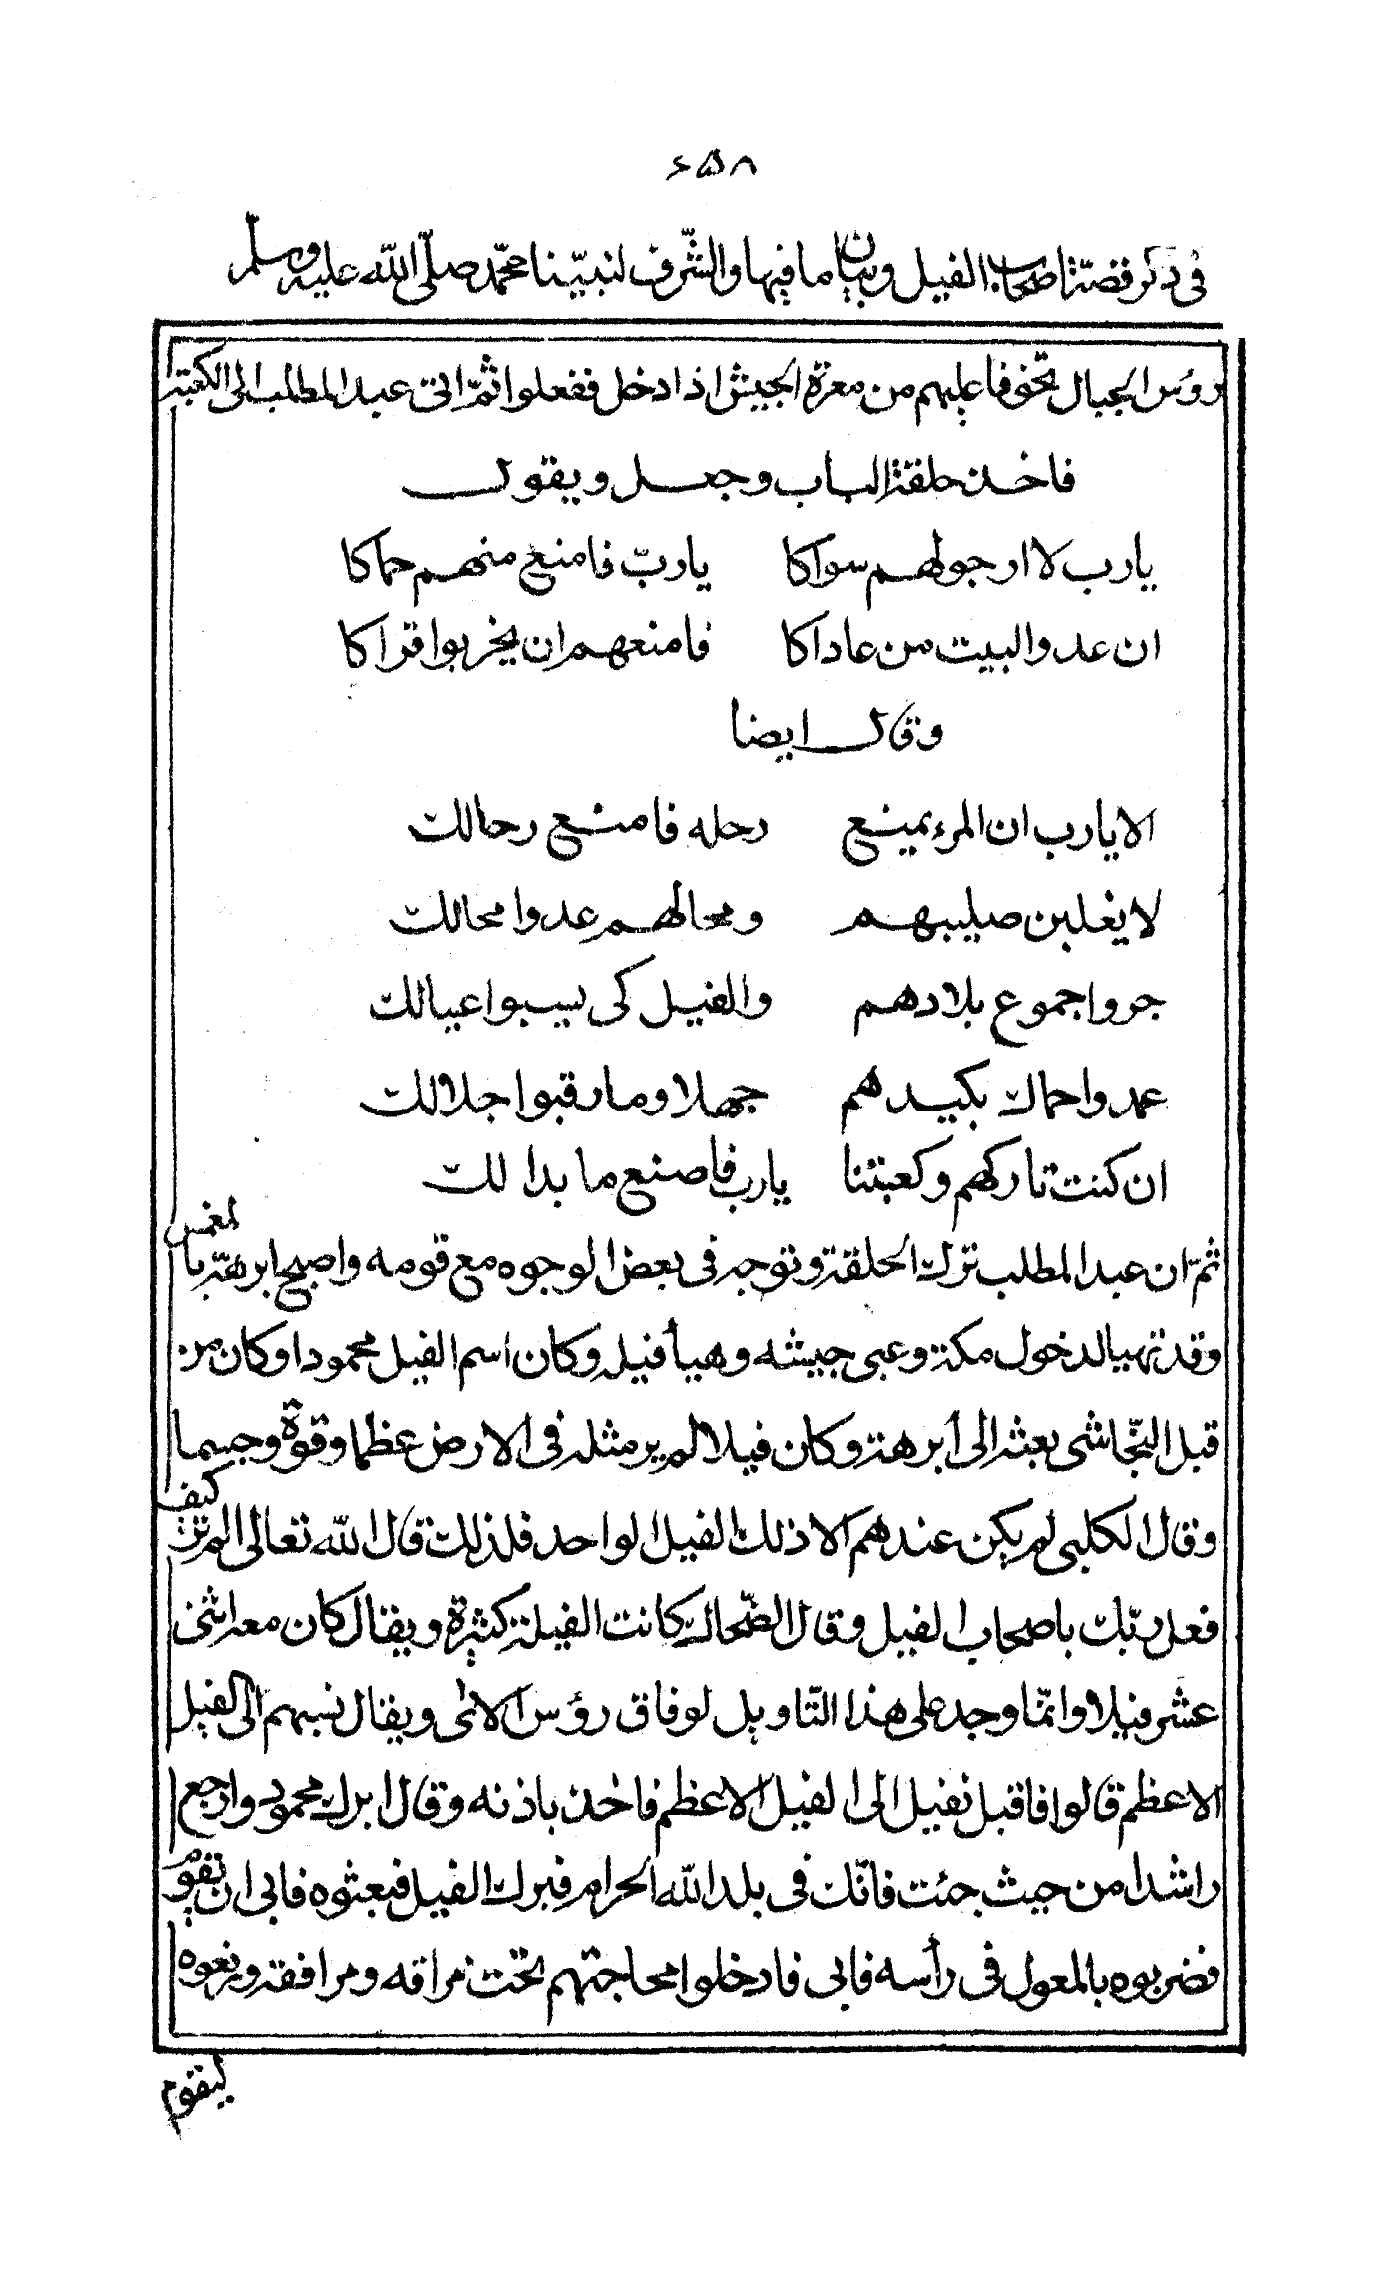 ۶۵۸
في ذكر قصّة اصحاب الفيل وبيان ما فيها والشّرف لنبيّنا محمّد صلّى الله عليه وسلّم
رؤس الجبال تخوفا عليهم من معرة الجيش اذا دخل ففعلوا ثمّ اتى عبد المطلب الى الكعبة
فاخذ حلقة الباب وجعل ويقول
يارب لا ارجو لهم سواكا     ياربّ فامنع منهم حماكا
ان عدو البيت من عاداكا     فامنعهم ان يخربوا قراكا
وقال ايضا
الا يارب ان المرء يمنع     رحله فامنع رحالك
لا يغلبن صليبهم     ومحالهم عدوا محالك
جروا جموع بلادهم     والفيل كى يسبوا عيالك
عمدوا حماك بكيدهم     جهلا وما رقبوا جلالك
ان كنت تاركهم وكعبتنا     يارب فاصنع ما بدا لك
ثمّ ان عبد المطلب ترك الحلقة وتوجه فى بعض الوجوه مع قومه واصبح ابرهة بالمغمس
وقد تهيا لدخول مكة وعبى جيشه وهيأ فيله وكان اسم الفيل محمودا وكان من
قبل النّجاشى بعثه الى أبرهة وكان فيلا لم ير مثله فى الارض عظما وقوة وجسما
وقال الكلبى لم يكن عندهم الا ذلك الفيل الواحد فلذلك قال الله تعالى الم تر كيف
فعل ربّك باصحاب الفيل وقال الضّحاك كانت الفيلة كثيرة ويقال كان معه اثنى
عشر فيلا وانّما وجد على هذا التّاويل لوفاق رؤس الاى ويقال نسبهم الى الفيل
الاعظم قالوا فاقبل نفيل الى الفيل الاعظم فاخذ باذنه وقال ابرك محمود وارجع
راشدا من حيث جئت فانّك فى بلد الله الحرام فبرك الفيل فبعثوه فابى ان يقوم
فضربوه بالمعول فى رأسه فابى فادخلوا محاجنهم تحت مراقه ومرافقه ونزعوه
ليقوم